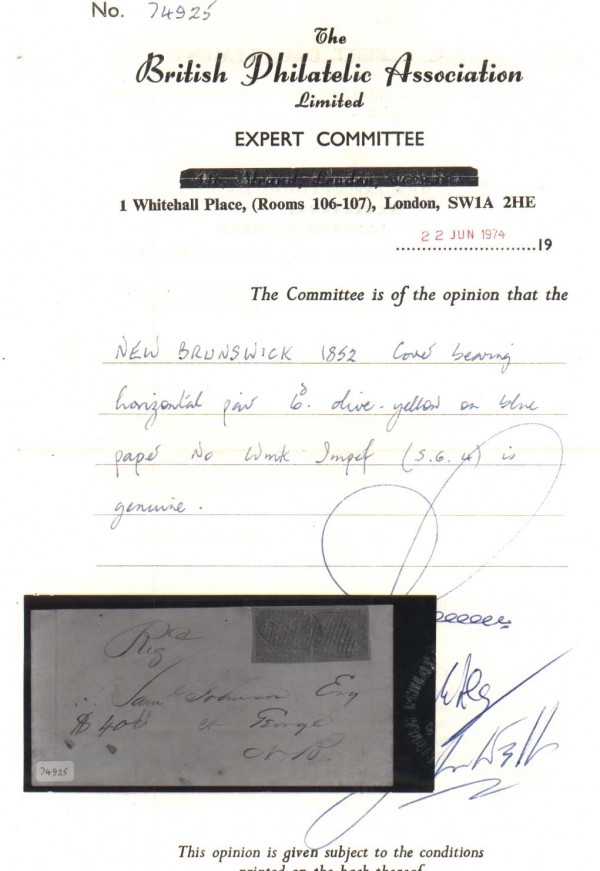 No. 74925
The
British Philatelic Association
Limited
EXPERT COMMITTEE
1 Whitehall Place, (Rooms 106-107), London, SW1A 2HE
22 JUN 1974 19
The Committee is of the opinion that the
NEW BRUNSWICK 1852 Cover bearing
horizontal pair 6d. olive-yellow on blue
paper No Wmk Imperf (S.G.4) is
genuine.
Sam Johnson Esq
$400 St George
N.B.
74925
This opinion is given subject to the conditions
printed on the back thereof